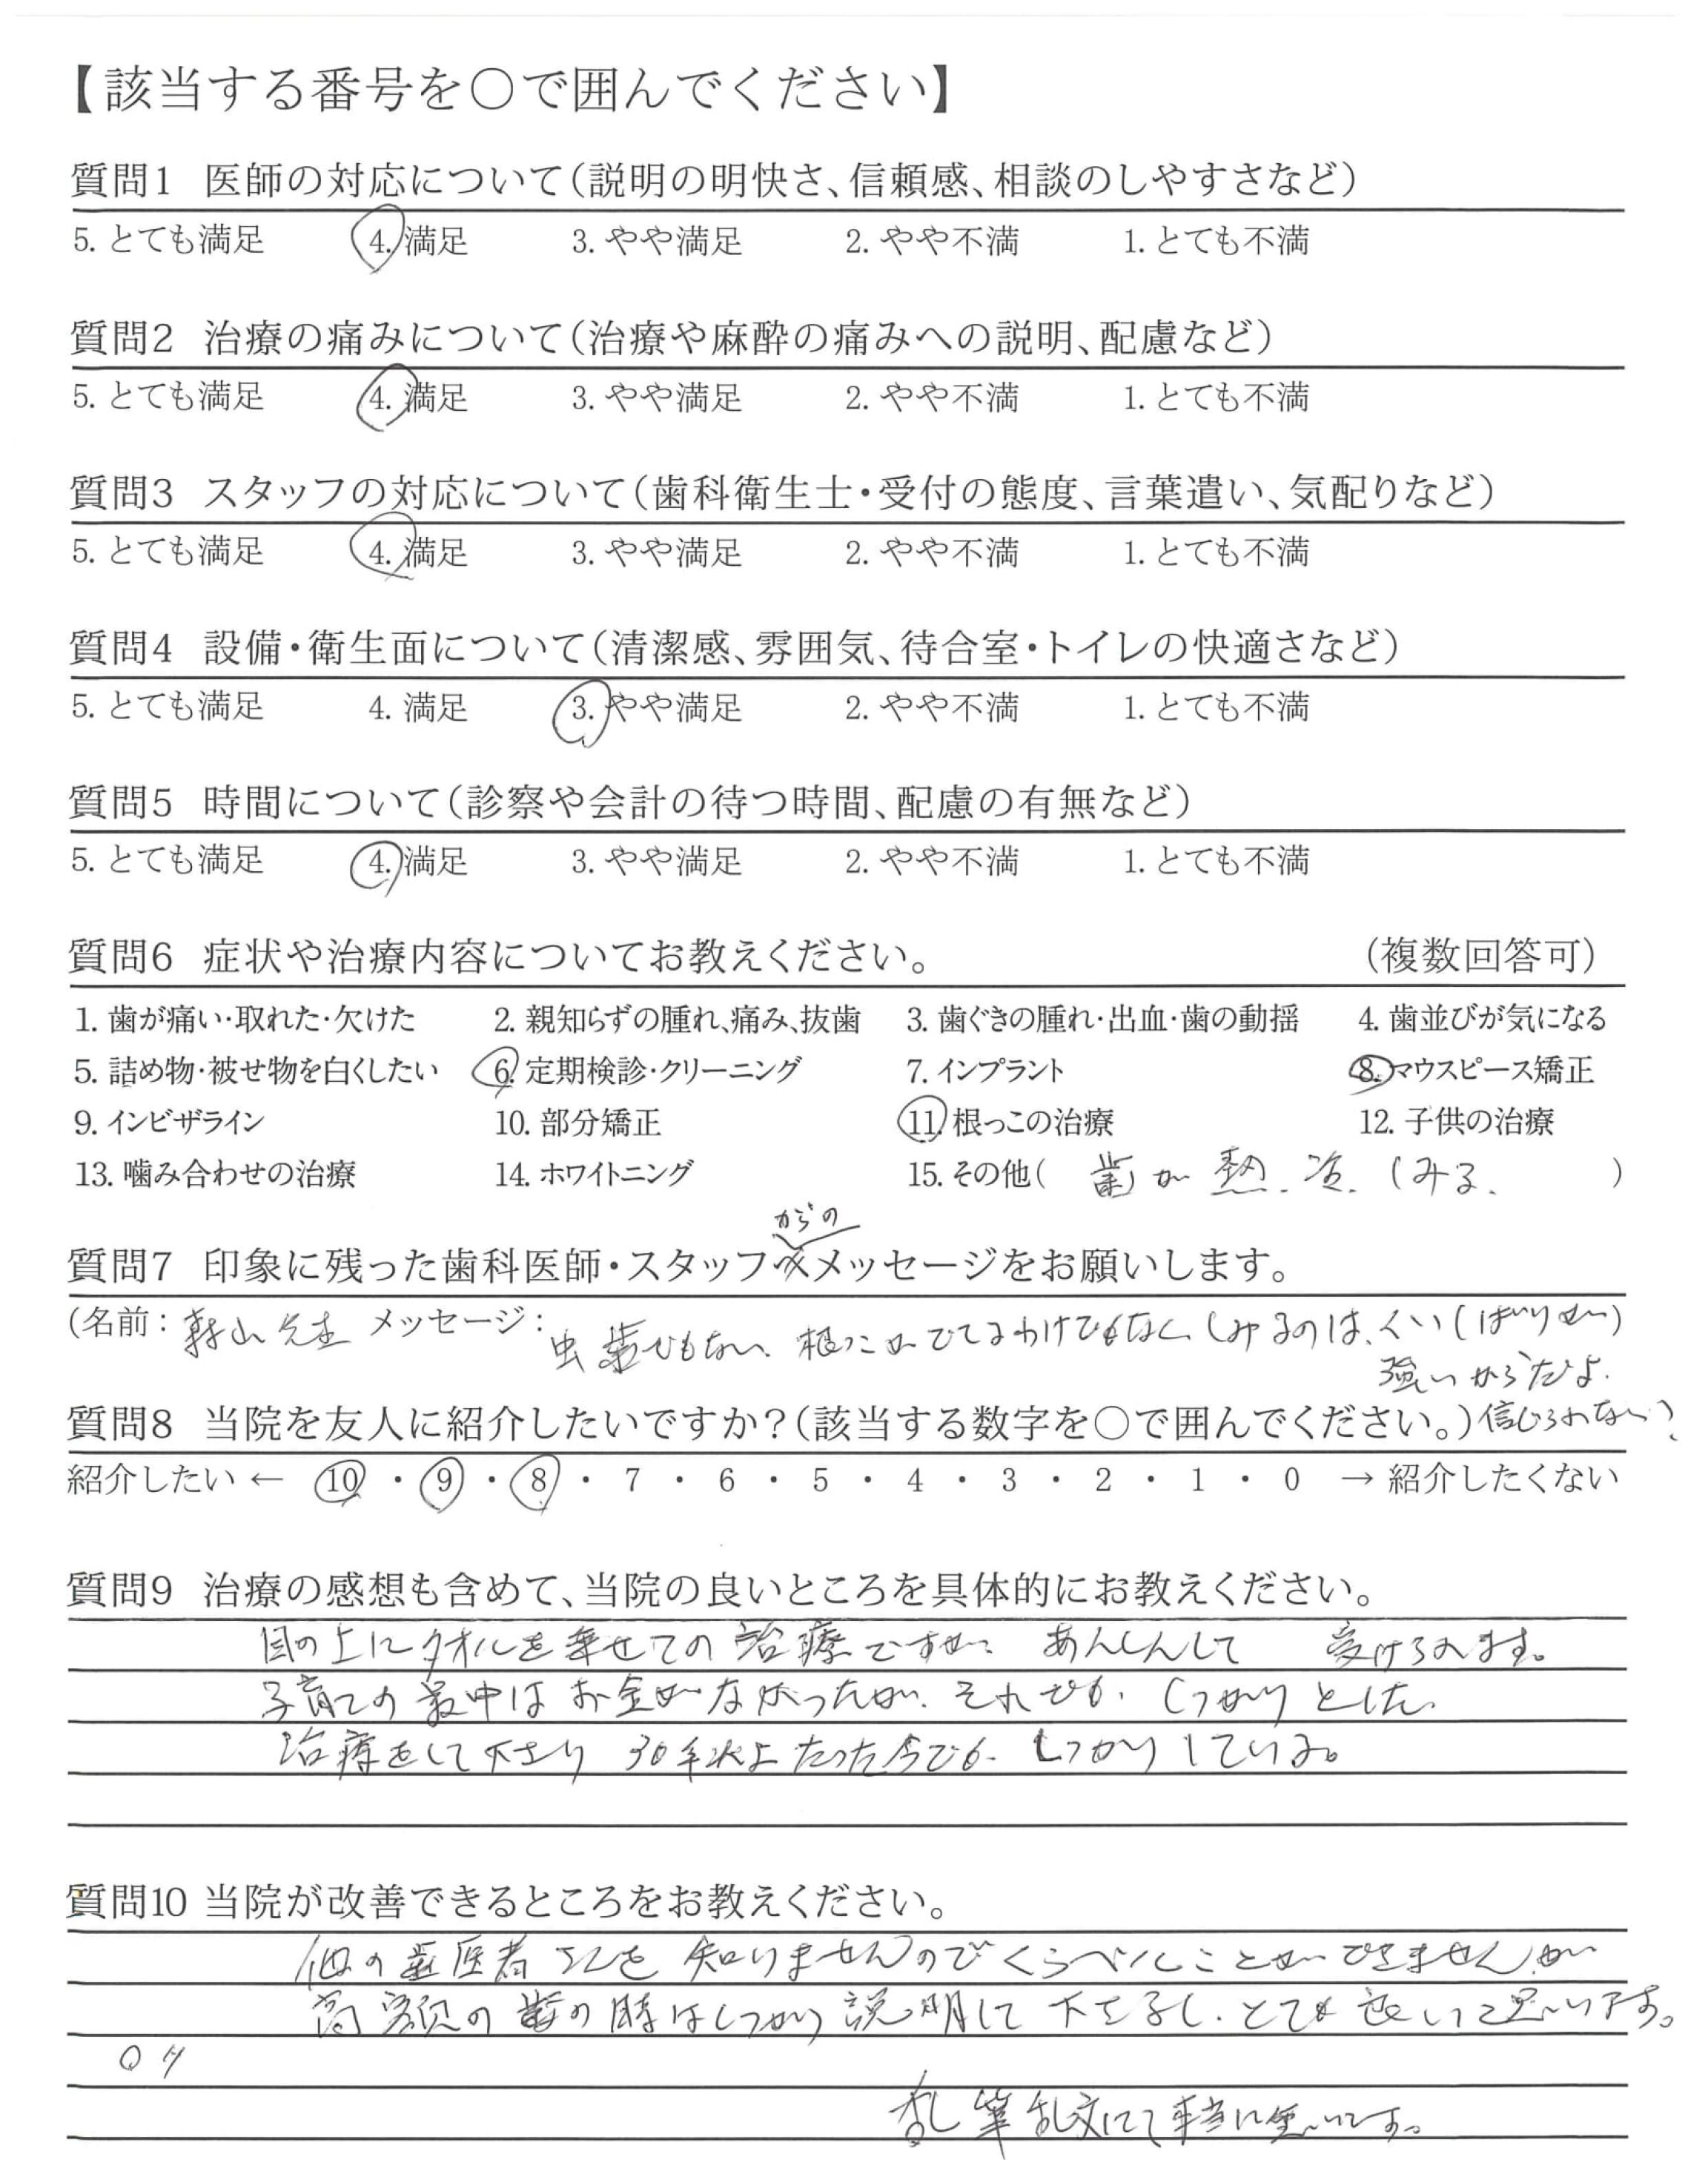 【該当する番号を○で囲んでください】
質問1 医師の対応について(説明の明快さ、信頼感、相談のしやすさなど)
5. とても満足 4. 満足 3. やや満足 2. やや不満 1. とても不満
質問2 治療の痛みについて(治療や麻酔の痛みへの説明、配慮など)
5. とても満足 4. 満足 3. やや満足 2. やや不満 1. とても不満
質問3 スタッフの対応について(歯科衛生士・受付の態度、言葉遣い、気配りなど)
5. とても満足 4. 満足 3. やや満足 2. やや不満 1. とても不満
質問4 設備・衛生面について(清潔感、雰囲気、待合室・トイレの快適さなど)
5. とても満足 4. 満足 3. やや満足 2. やや不満 1. とても不満
質問5 時間について(診察や会計の待つ時間、配慮の有無など)
5. とても満足 4. 満足 3. やや満足 2. やや不満 1. とても不満
質問6 症状や治療内容についてお教えください。 (複数回答可)
1. 歯が痛い・取れた・欠けた 2. 親知らずの腫れ、痛み、抜歯 3. 歯ぐきの腫れ・出血・歯の動揺 4. 歯並びが気になる
5. 詰め物・被せ物を白くしたい 6. 定期検診・クリーニング 7. インプラント 8. マウスピース矯正
9. インビザライン 10. 部分矯正 11. 根っこの治療 12. 子供の治療
13. 噛み合わせの治療 14. ホワイトニング 15. その他( 歯が熱.冷.しみる. )
からの
質問7 印象に残った歯科医師・スタッフへメッセージをお願いします。
(名前: 先生 メッセージ: 虫歯でもない、根っこがでてるわけでもなく、しみるのは、くい(ばりが)
強いからだよ.
質問8 当院を友人に紹介したいですか?(該当する数字を○で囲んでください。) 信じられない?
紹介したい ← 10 ・ 9 ・ 8 ・ 7 ・ 6 ・ 5 ・ 4 ・ 3 ・ 2 ・ 1 ・ 0 → 紹介したくない
質問9 治療の感想も含めて、当院の良いところを具体的にお教えください。
目の上にタオルを乗せての治療ですが あんしんして 受けられます。
子育ての最中はお金がなかったが、それでも、しっかりとした
治療をして下さり 30年以上たった今でも、しっかりしている。
質問10 当院が改善できるところをお教えください。
他の歯医者さんを知りませんのでくらべることができませんが
高額の歯の時はしっかり説明して下さるし、とても良いと思います。
乱筆乱文にて本当に